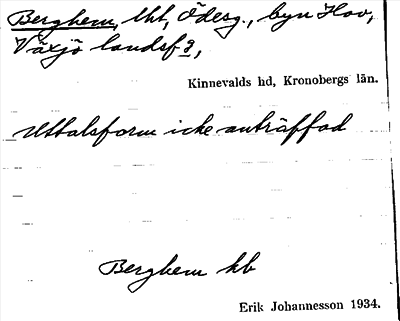 Berghem, lht, Ödesg., byn Hov,
Växjö landsf 9,
Kinnevalds hd, Kronobergs län.
Uttalsform icke anträffad
Berghem hb
Erik Johannesson 1934.